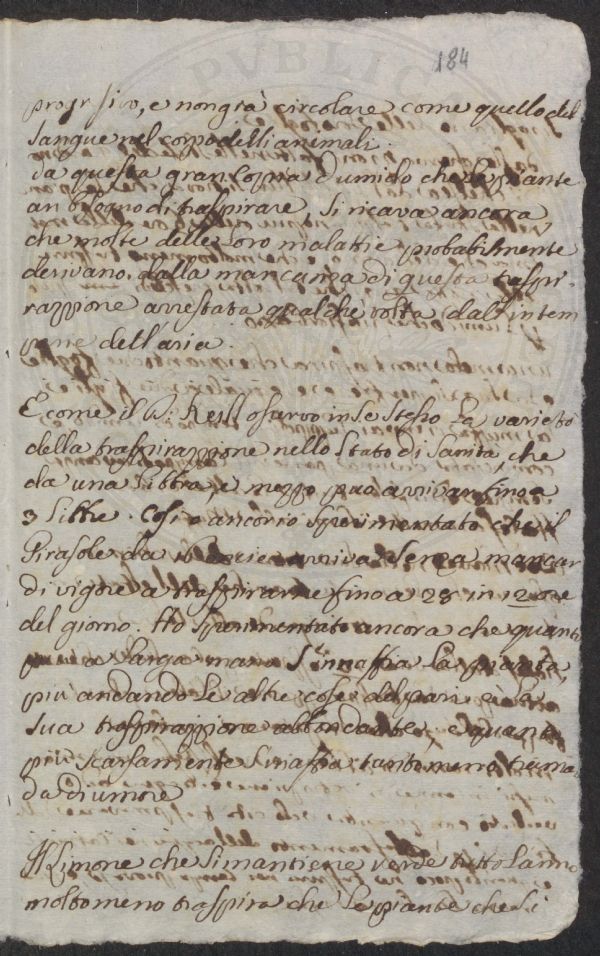 184
progrssivo, e non gia circolare come quello del
sangue nel corpo delli animali.
da questa gran copia d'umido che le piante
an bisogno di traspirare, si ricava ancora,
che molte delle loro malattie probabilmente
derivano dalla mancanza di questa traspi-
razzione arrestata qualche volta dall'intem
perie dell'aria.
E come il D: Keill osservò in se stesso la varietà
della traspirazzione nello stato di sanità, che
da una libbra, e mezzo può arrivar fino a
3 libbre. Cosi o ancor io sperimentato che il
Girasole da 16 oncie arriva senza mancar
di vigore a traspirarne fino a 28 in 12 ore
del giorno. Ho sperimentato ancora che quanti
più a larga mano s'innaffia la pianta,
più andando le altre cose del pari è la
sua traspirazzione abbondante, e quanto
più scarsamente s'inaffia tanto meno trama
da di umore
Il Limone che si mantiene verde tutto l'anno
molto meno traspira che le piante che si